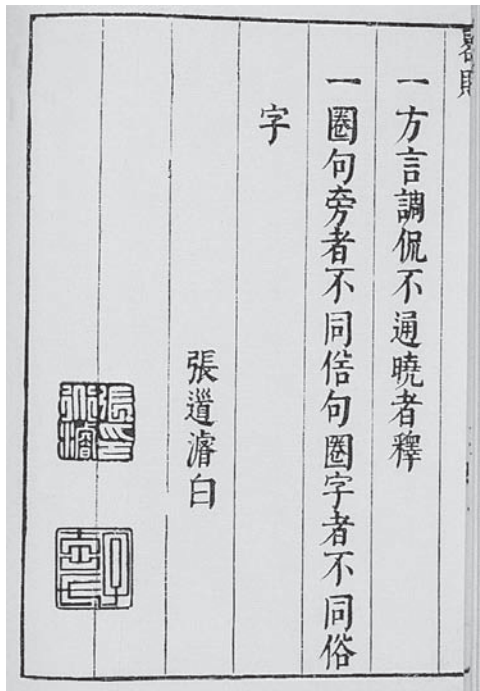 一方言調侃不通曉者釋
一圈句旁者不同俗句圈字者不同俗
字
張道濬白
張印道濬